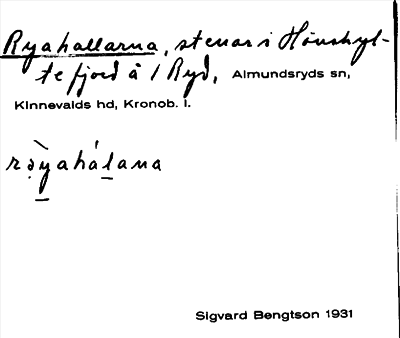 Ryahallarna, stenar i Hönshyl-
tefjord å 1 Ryd, Almundsryds sn,
Kinnevalds hd, Kronob. l.
rə̣̀y̲ahál̲ana
Sigvard Bengtson 1931